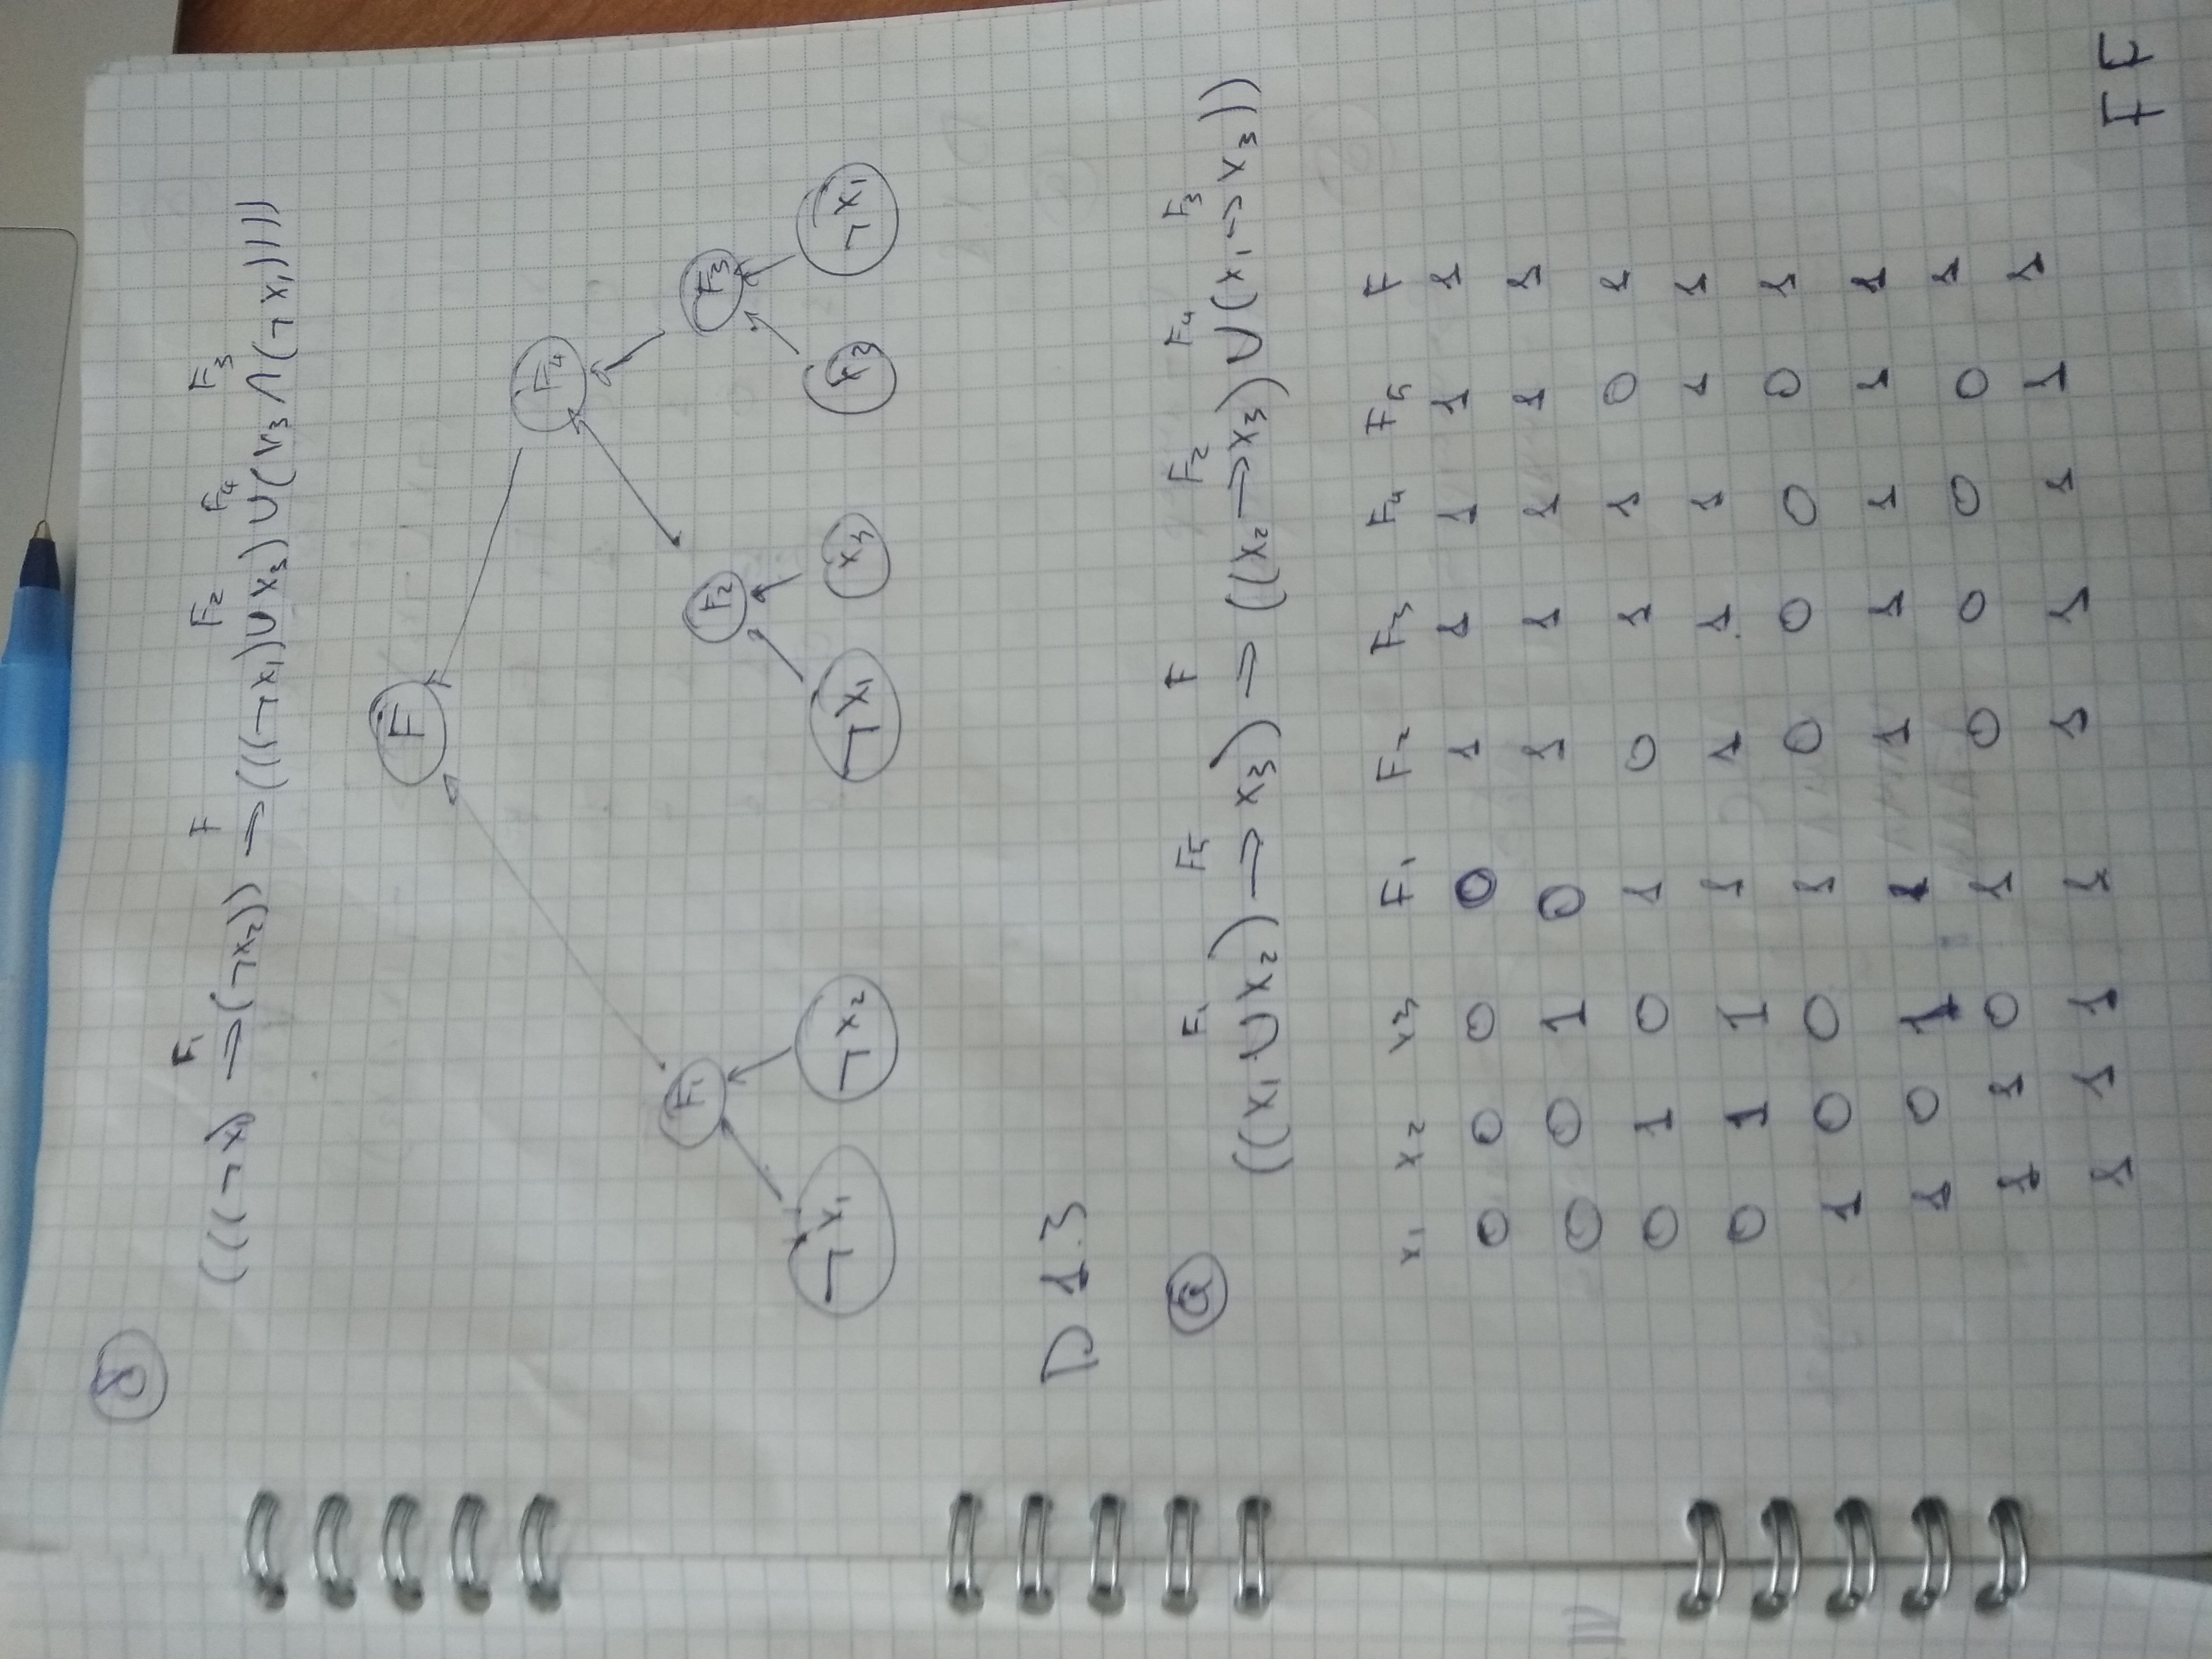 δ
F₁ F F₂ F₄ F₃
(((¬x₁) → (¬x₂)) → (((¬x₁) ∪ x₃) ∪ (x₃ ∧ (¬x₁))))
F
F₄
F₁ F₂ F₃
¬x₁ ¬x₂ ¬x₁ x₃ x₃ ¬x₁
D 1.3
a
F₁ F₅ F F₂ F₄ F₃
((x₁ ∪ x₂) → x₃) → ((x₂ → x₃) ∪ (x₁ → x₃))
x₁ x₂ x₃ F₁ F₂ F₃ F₄ F₅ F
0 0 0 0 1 1 1 1 1
0 0 1 0 1 1 1 1 1
0 1 0 1 0 1 1 0 1
0 1 1 1 1 1 1 1 1
1 0 0 1 0 0 0 0 1
1 0 1 1 1 1 1 1 1
1 1 0 1 0 0 0 0 1
1 1 1 1 1 1 1 1 1
F F